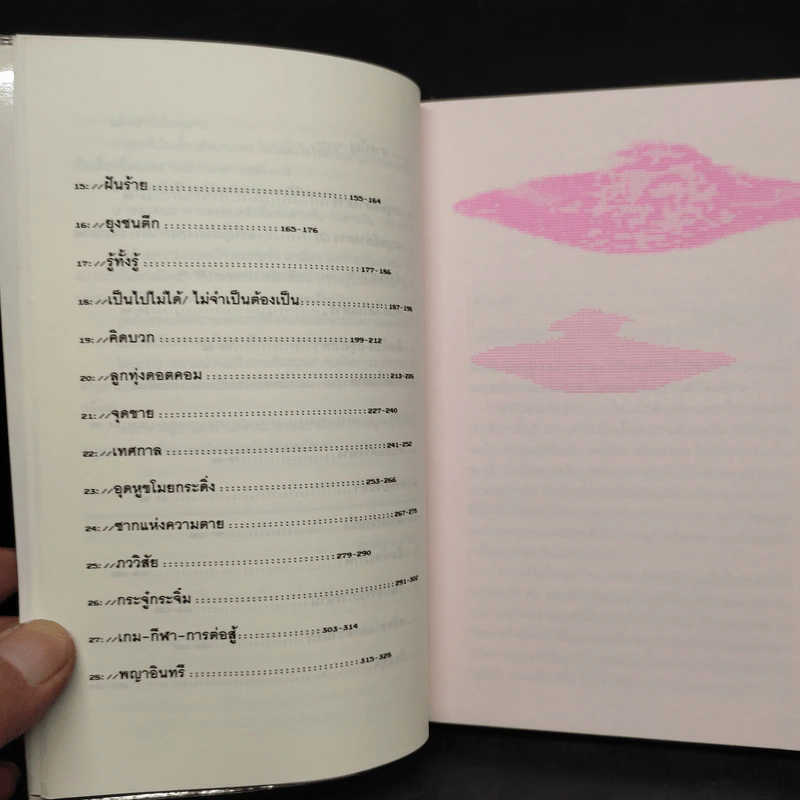 15://ฝันร้าย ::::::::::::::::::::::::::::::::155-164
16://ยุงชนตึก ::::::::::::::::::165-176
17://รู้ทั้งรู้ ::::::::::::::::::::::::::::::::::177-186
18://เป็นไปไม่ได้/ ไม่จำเป็นต้องเป็น::::::::::::::187-198
19://คิดบวก ::::::::::::::::::::::::::::::199-212
20://ลูกทุ่งดอตคอม ::::::::::::::::::::::::::::213-226
21://จุดขาย ::::::::::::::::::::::::::::::::227-240
22://เทศกาล ::::::::::::::::::::::::::::::::::241-252
23://อุดหูขโมยกระดิ่ง ::::::::::::::::::::::253-266
24://ซากแห่งความตาย ::::::::::::::::::::::::::267-278
25://ภววิสัย ::::::::::::::::::::::::::279-290
26://กระจู๋กระจิ๋ม ::::::::::::::::::::::::::::::291-302
27://เกม-กีฬา-การต่อสู้::::::::::::303-314
28://พญาอินทรี ::::::::::::::::::::::::::315-328